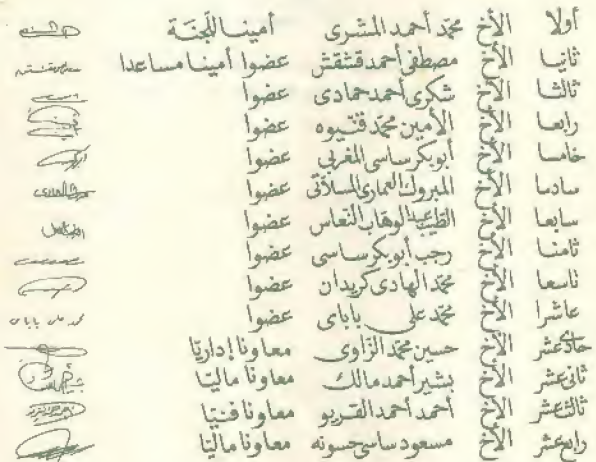 أولا الأخ محمد أحمد المشرى أمينا للجنة
ثانيا الأخ مصطفى أحمد قشقش عضوا أمينا مساعدا
ثالثا الأخ شكرى أحمد حمادى عضوا
رابعا الأخ الأمين محمد قنيوه عضوا
خامسا الأخ أبوبكر ساسى المغربي عضوا
سادسا الأخ المبروك العمارى المسلاتى عضوا
سابعا الأخ الطيب عبد الوهاب النعاس عضوا
ثامنا الأخ رجب أبوبكر ساسى عضوا
تاسعا الأخ محمد الهادى كريدان عضوا
عاشرا الأخ محمد على باباى عضوا محمد على باباى
حادى عشر الأخ حسين محمد الزاوى معاونا إداريا
ثانى عشر الأخ بشير أحمد مالك معاونا ماليا
ثالث عشر الأخ أحمد أحمد القريو معاونا فنيا
رابع عشر الأخ مسعود ساسى حسونه معاونا ماليا